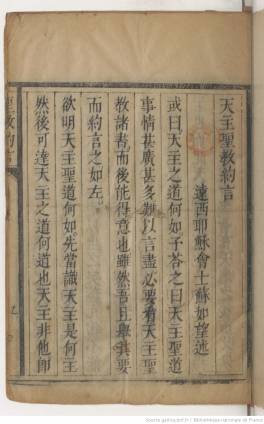 天主聖教約言
遠西耶穌會士蘇如望述
或曰天主之道何如予荅之曰天主聖道
事情甚廣甚多難以言盡必要看天主聖
教諸書而後能得意也雖然吾且舉其要
而約言之如左
欲明天主聖道何如先當識天主是何主
然後可達天主之道何道也天主非他卽
聖教約言
Source gallica.bnf.fr / Bibliothèque nationale de France